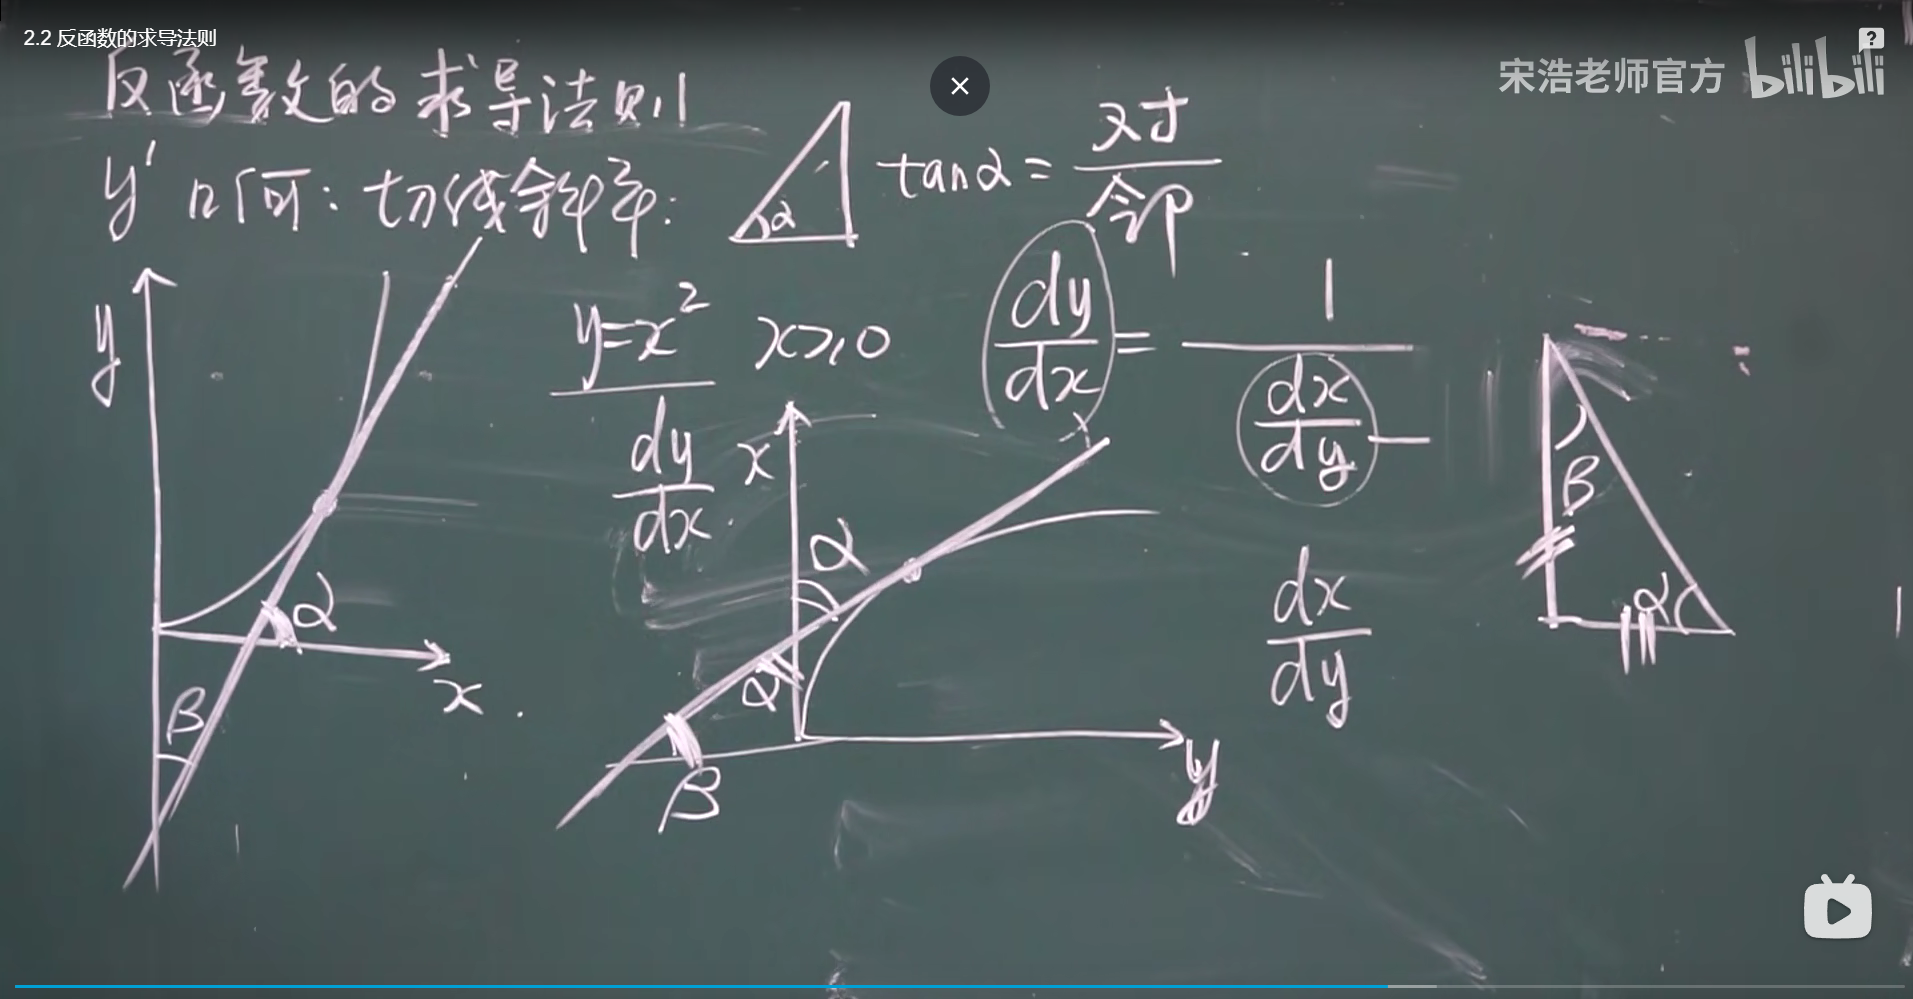 2.2 反函数的求导法则
宋浩老师官方 bilibili
反函数的求导法则
y' 几何: 切线斜率:
α
tanα = 对/邻
y
y=x² x≥0
dy/dx = 1/(dx/dy)
dy/dx
x
α
α
β
x
β
α
y
dx/dy
β
α